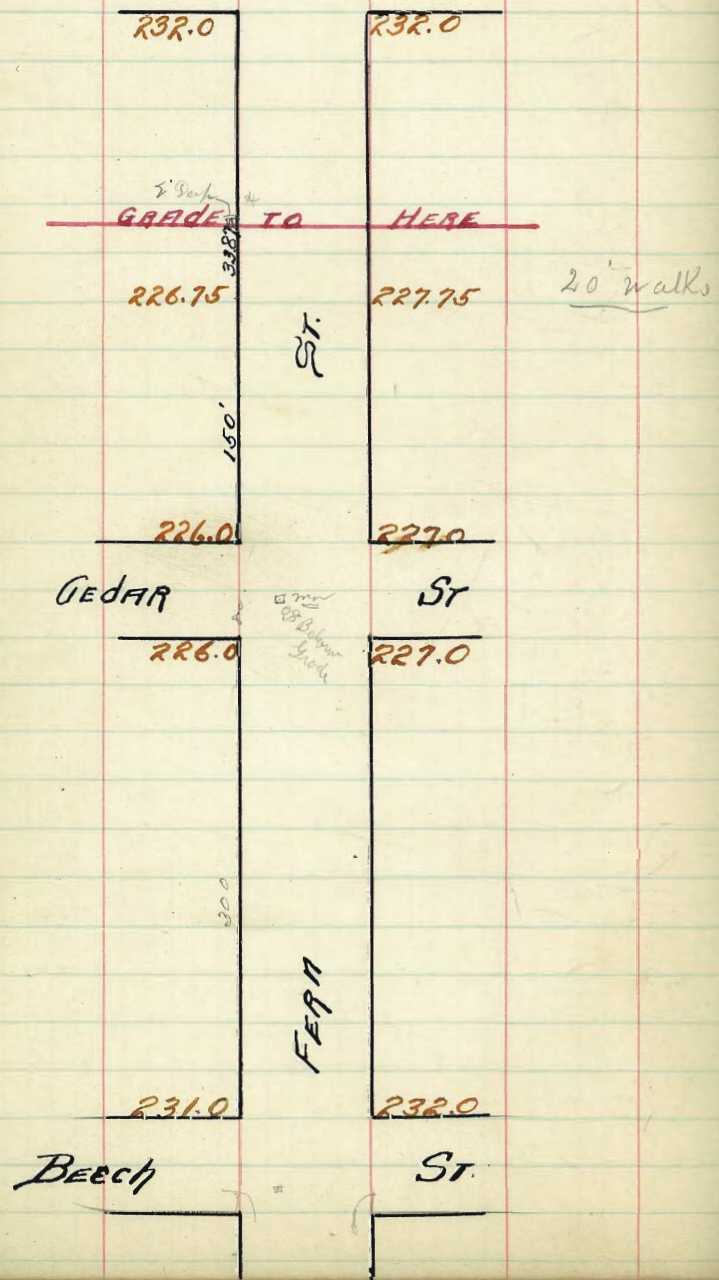 232.0 232.0
GRADE TO HERE
33.87
226.75 227.75
20' walks
ST.
150'
226.0 227.0
CEDAR ST
mon
08 Below
Grade
226.0 227.0
300
FERN
231.0 232.0
BEECH ST.